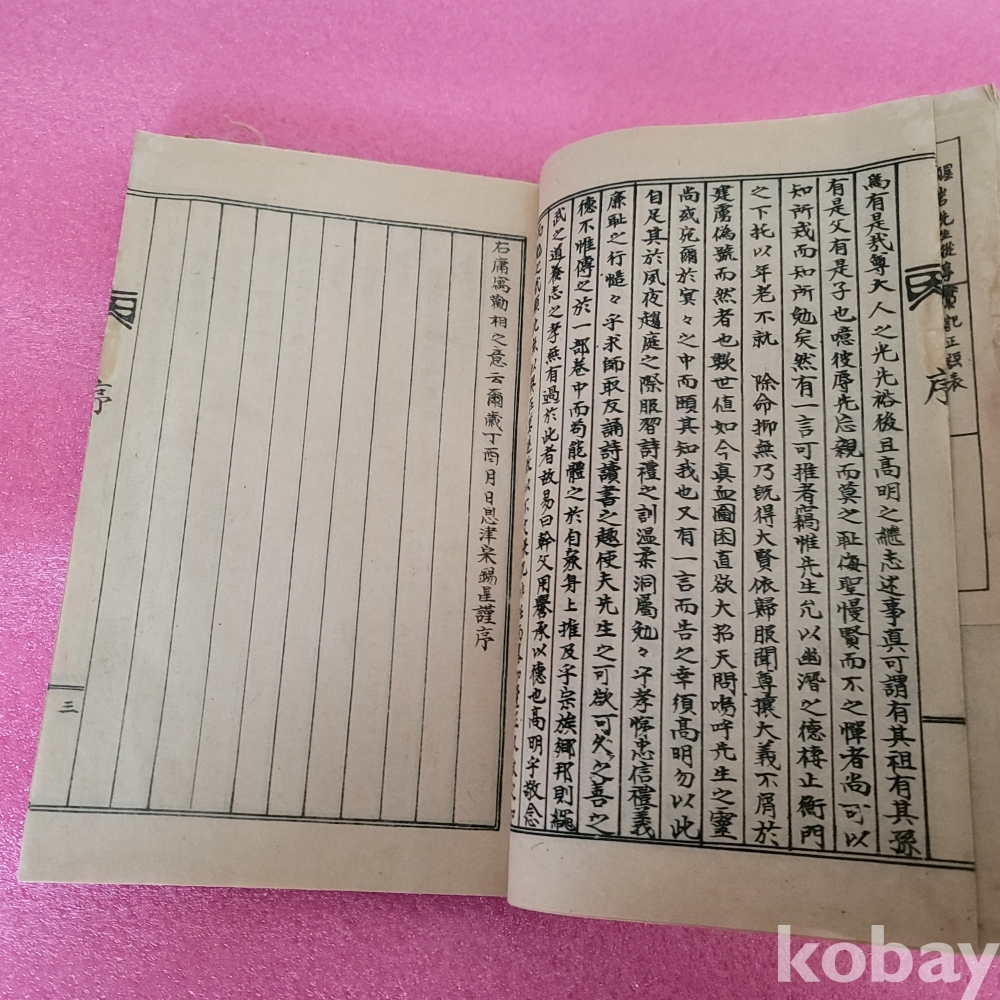 爲有是我尊大人之光先裕後且高明之繼志述事眞可謂有其祖有其孫
有是父有是子也噫彼辱先忘親而莫之耻侮聖慢賢而不之憚者尚可以
知所戒而知所勉矣然有一言可推者竊惟先生允以幽潛之德棲止衡門
之下托以年老不就 除命抑無乃旣得大賢依歸服聞尊攘大義不屑於
建虜僞號而然者也歟世値如今眞血圖困直欲大招天問嗚呼先生之靈
尚或莞爾於冥々之中而頤其知我也又有一言而告之幸須高明勿以此
自足其於夙夜趨庭之際服習詩禮之訓温柔洞屬勉々乎孝悌忠信禮義
廉耻之行慥々乎求師取友誦詩讀書之趣使夫先生之可欲可久之善之
德不惟傳之於一部卷中而苟能體之於自家身上推及乎宗族鄕邦則繩
武之道養志之孝無有過於此者故易曰幹父用譽承以德也高明乎敬念
右庸寓勸相之意云爾歲丁酉月日恩津宋錫星謹序
序
三
序
先生從
記正誤表
kobay